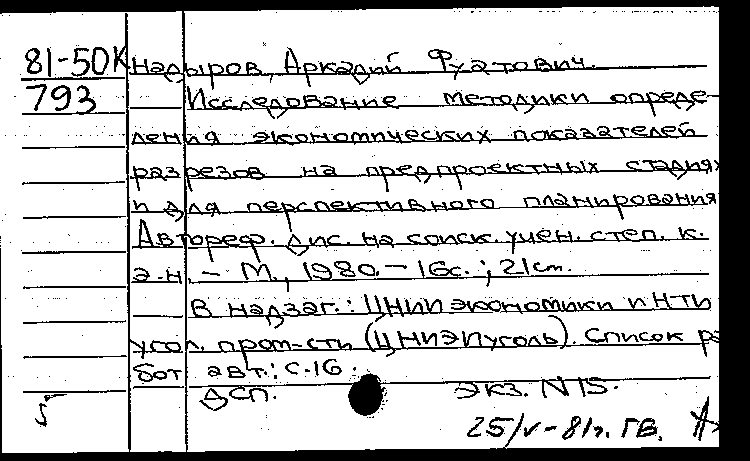 81-50К Надыров, Аркадий Фуатович.
793 Исследование методики опреде-
ления экономических показателей
разрезов на предпроектных стадиях
и для перспективного планирования
Автореф. дис. на соиск. учен. степ. к.
э.н. – М., 1980. – 16с.; 21см.
В надзаг.: ЦНИИ экономики и НТИ
угол. пром-сти (ЦНИЭИуголь). Список ра
бот авт.: с.16.
ДСП. Экз. N 15.
25/V-81г. ГВ.